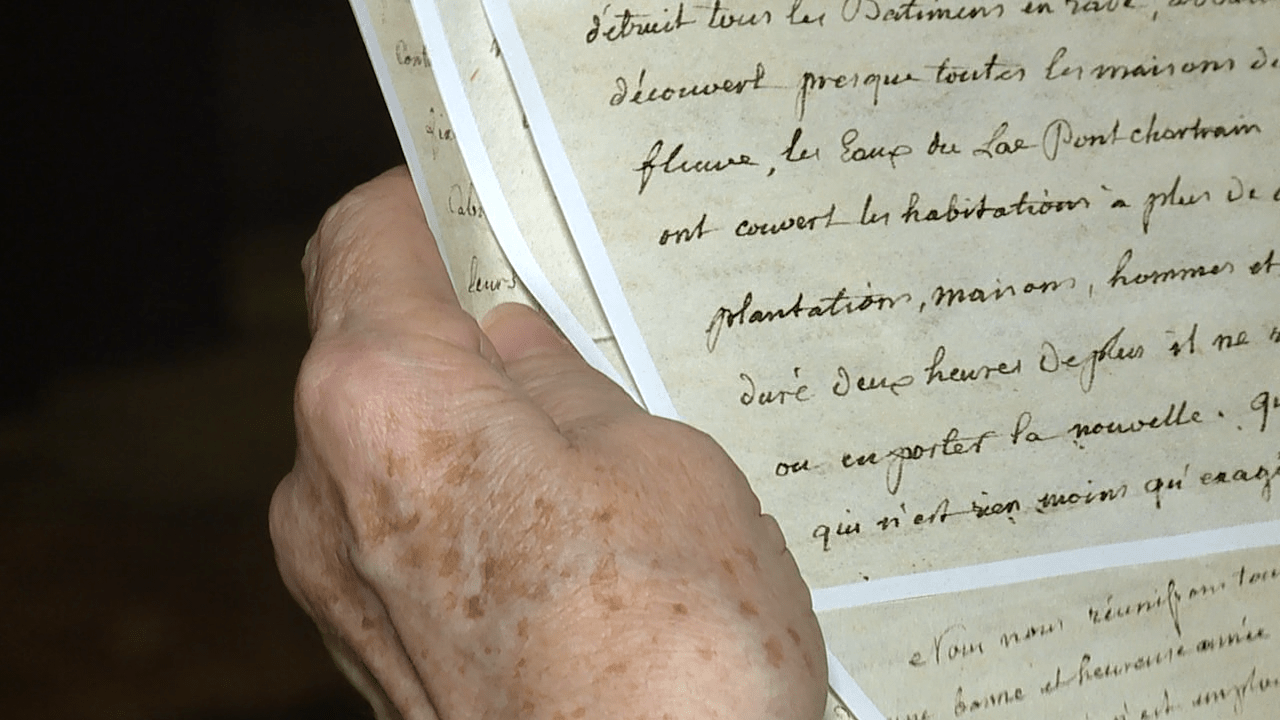 détruit tous les Batimens en rade,
découvert presque toutes les maisons de
fleuve, les Eaux du Lac Pontchartrain
ont couvert les habitations à plus de
plantations, maisons, hommes et
duré deux heures de plus il ne
ou en porter la nouvelle. qu
qui n'est rien moins qu'exagé
Nous nous réunissons tou
une bonne et heureuse année
n'est
Cont
leurs